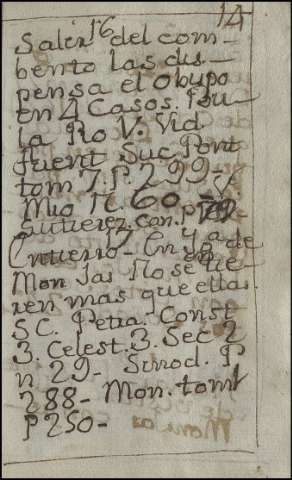 14
Salir 16 del com-
bento las dis-
pensa el Obispo
en 4 Casos. Bu-
la Ro V. Vid
fuent Suc Pont
tom 7. P. 299-
Mio N. 60.
Gutierez can. P
Entierro- 17 En
Mon Jas No se en tie-
ren mas que ellas
S C. Petra. Const
3. Celest. 3. Sec 2
n 29- Sinod. P
288- Mon. tom 1
P 250-